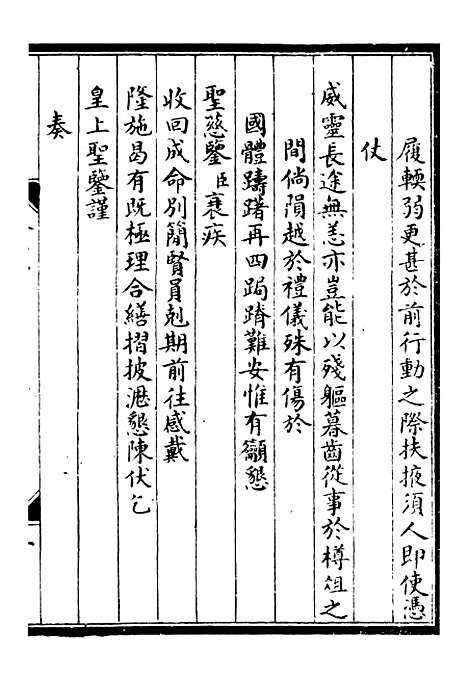 履輭弱更甚於前行動之際扶掖須人即使憑
仗
威靈長途無恙亦豈能以殘軀暮齒從事於樽俎之
間倘隕越於禮儀殊有傷於
國體躊躇再四跼蹐難安惟有籲懇
聖慈鑒臣衰疾
收回成命別簡賢員剋期前往感戴
隆施曷有既極理合繕摺披瀝懇陳伏乞
皇上聖鑒謹
奏